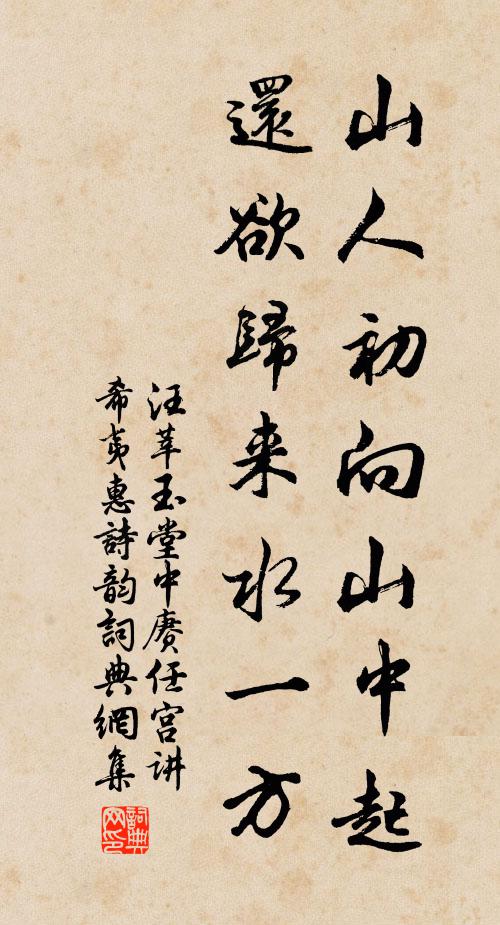 山人初向山中起
還欲歸来水一方
汪莘玉堂中賡任宫讲
希夷惠詩韵詞典網集
詞典网印